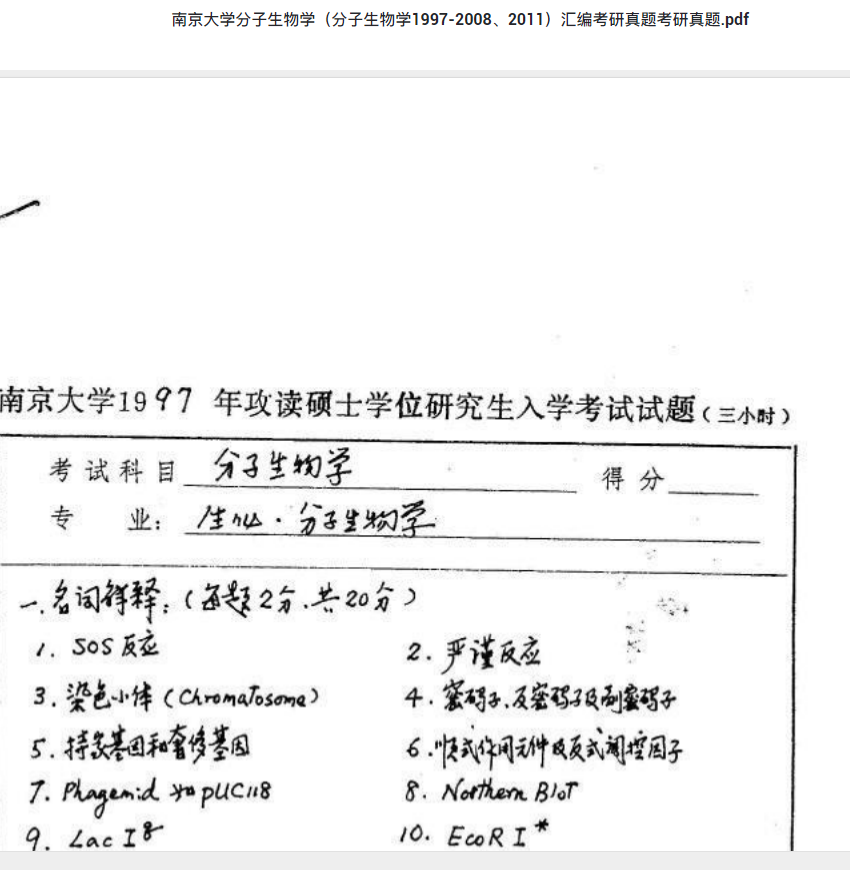 南京大学分子生物学（分子生物学1997-2008、2011）汇编考研真题考研真题.pdf
南京大学1997 年攻读硕士学位研究生入学考试试题（三小时）
考试科目 分子生物学 得分
专 业： 生化·分子生物学
一.名词解释：（每题2分、共20分）
1. SOS反应 2. 严谨反应
3. 染色小体（Chromatosome） 4. 密码子、反密码子及副密码子
5. 持家基因和奢侈基因 6. 顺式作用元件及反式调控因子
7. Phagemid 如 pUC118 8. Northern Blot
9. Lac I 10. EcoR I*